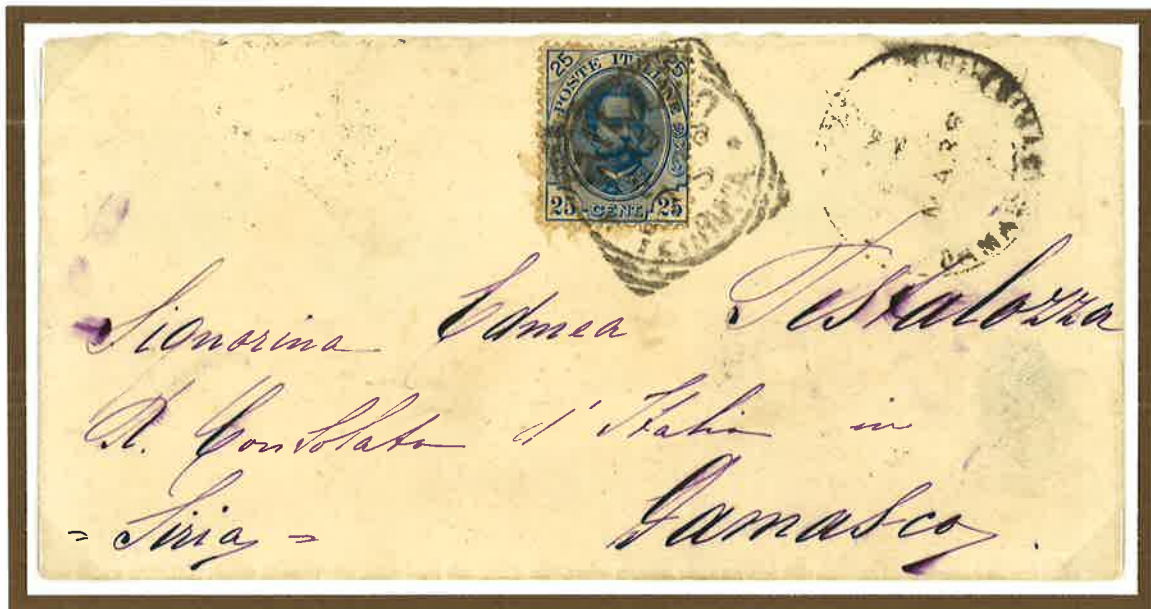 25 25
POSTE ITALIANE
25 CENT. 25
MAR 96
DAMA
Signorina Edmea Pestalozza
R. Consolato d' Italia in
= Siria = Damasco.